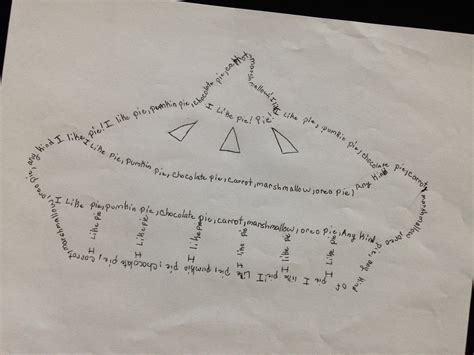 I like pie! I like pie, pumkin pie, chocolate pie, carrot,
I like pie, pumkin pie, chocolate pie, carrot, marshmallow, oreo pie, any kind
I Like Pie! Pie!
I Like pie, pumkin pie, chocolate pie, carrot, marshmallow, oreo pie, Any kind
I Like pie, pumpkin pie, chocolate pie, carrot, marshmallow, oreo pie, Any kind
I Like Pie
I Like Pie
I Like Pie
I Like Pie
I Like Pie
I Like Pie
of pie I like! I Like pie, pumkin pie, chocolate pie, carrot, marshmallow, oreo pie, any kind